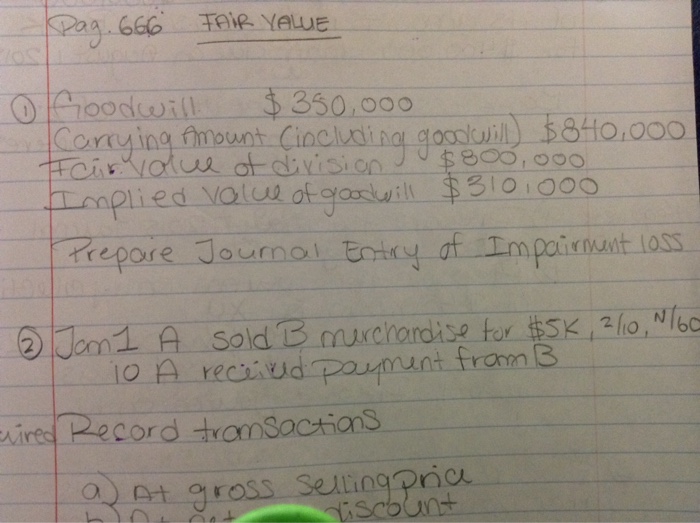 Pag. 666 FAIR VALUE
① Goodwill $350,000
Carrying Amount (including goodwill) $840,000
Fair value of division $800,000
Implied value of goodwill $310,000
Prepare Journal Entry of Impairment loss
② Jan 1 A sold B merchandise for $5K, 2/10, N/60
10 A received payment from B
uired Record transactions
a) At gross selling price
b) At net discount